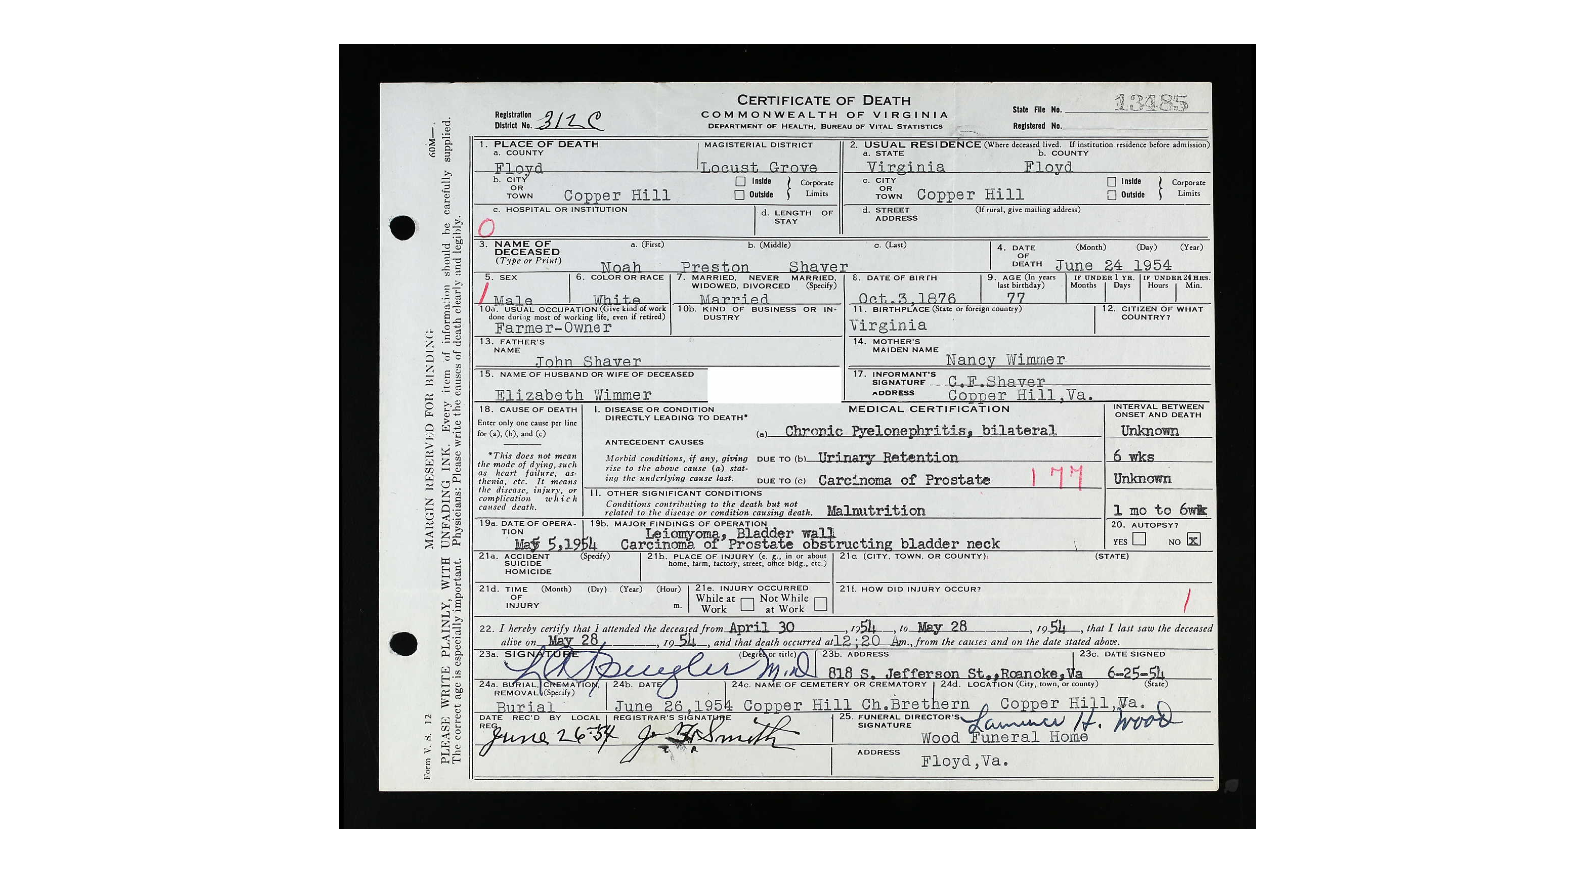 CERTIFICATE OF DEATH
COMMONWEALTH OF VIRGINIA
DEPARTMENT OF HEALTH, BUREAU OF VITAL STATISTICS
Registration District No. 312 C
State File No. 13485
Registered No.
1. PLACE OF DEATH
a. COUNTY Floyd
MAGISTERIAL DISTRICT Locust Grove
b. CITY OR TOWN Copper Hill
Inside Outside Corporate Limits
c. HOSPITAL OR INSTITUTION
0
d. LENGTH OF STAY
2. USUAL RESIDENCE (Where deceased lived. If institution residence before admission)
a. STATE Virginia b. COUNTY Floyd
c. CITY OR TOWN Copper Hill
Inside Outside Corporate Limits
d. STREET ADDRESS (If rural, give mailing address)
3. NAME OF DECEASED (Type or Print)
a. (First) b. (Middle) c. (Last)
Noah Preston Shaver
4. DATE OF DEATH (Month) (Day) (Year)
June 24 1954
5. SEX Male
6. COLOR OR RACE White
7. MARRIED, NEVER MARRIED, WIDOWED, DIVORCED (Specify) Married
8. DATE OF BIRTH Oct.3,1876
9. AGE (In years last birthday) 77
IF UNDER 1 YR. Months Days
IF UNDER 24 HRS. Hours Min.
10a. USUAL OCCUPATION (Give kind of work done during most of working life, even if retired)
Farmer-Owner
10b. KIND OF BUSINESS OR INDUSTRY
11. BIRTHPLACE (State or foreign country)
Virginia
12. CITIZEN OF WHAT COUNTRY?
13. FATHER'S NAME
John Shaver
14. MOTHER'S MAIDEN NAME
Nancy Wimmer
15. NAME OF HUSBAND OR WIFE OF DECEASED
Elizabeth Wimmer
17. INFORMANT'S SIGNATURE C.F.Shaver
ADDRESS Copper Hill,Va.
18. CAUSE OF DEATH
Enter only one cause per line for (a), (b), and (c)
*This does not mean the mode of dying, such as heart failure, asthenia, etc. It means the disease, injury, or complication which caused death.
MEDICAL CERTIFICATION
INTERVAL BETWEEN ONSET AND DEATH
I. DISEASE OR CONDITION DIRECTLY LEADING TO DEATH*
(a) Chronic Pyelonephritis, bilateral Unknown
ANTECEDENT CAUSES
Morbid conditions, if any, giving rise to the above cause (a) stating the underlying cause last.
DUE TO (b) Urinary Retention 6 wks
DUE TO (c) Carcinoma of Prostate 177 Unknown
II. OTHER SIGNIFICANT CONDITIONS
Conditions contributing to the death but not related to the disease or condition causing death.
Malnutrition 1 mo to 6wk
19a. DATE OF OPERATION May 5,1954
19b. MAJOR FINDINGS OF OPERATION
Leiomyoma, Bladder wall
Carcinoma of Prostate obstructing bladder neck
20. AUTOPSY?
YES NO X
21a. ACCIDENT SUICIDE HOMICIDE (Specify)
21b. PLACE OF INJURY (e. g., in or about home, farm, factory, street, office bldg., etc.)
21c. (CITY, TOWN, OR COUNTY) (STATE)
21d. TIME OF INJURY (Month) (Day) (Year) (Hour) m.
21e. INJURY OCCURRED
While at Work Not While at Work
21f. HOW DID INJURY OCCUR?
22. I hereby certify that I attended the deceased from April 30, 1954, to May 28, 1954, that I last saw the deceased
alive on May 28, 1954, and that death occurred at 12;20 Am., from the causes and on the date stated above.
23a. SIGNATURE (Degree or title) M.D.
23b. ADDRESS
818 S. Jefferson St.,Roanoke,Va
23c. DATE SIGNED
6-25-54
24a. BURIAL, CREMATION, REMOVAL (Specify)
Burial
24b. DATE
June 26,1954
24c. NAME OF CEMETERY OR CREMATORY
Copper Hill Ch.Brethern
24d. LOCATION (City, town, or county) (State)
Copper Hill,Va.
DATE REC'D BY LOCAL REG.
June 26-54
REGISTRAR'S SIGNATURE
Smith
25. FUNERAL DIRECTOR'S SIGNATURE
Lawrence H. Wood
Wood Funeral Home
ADDRESS
Floyd,Va.
Form V. S. 12
60M—.
MARGIN RESERVED FOR BINDING
PLEASE WRITE PLAINLY, WITH UNFADING INK. Every item of information should be carefully supplied.
The correct age is especially important. Physicians: Please write the causes of death clearly and legibly.